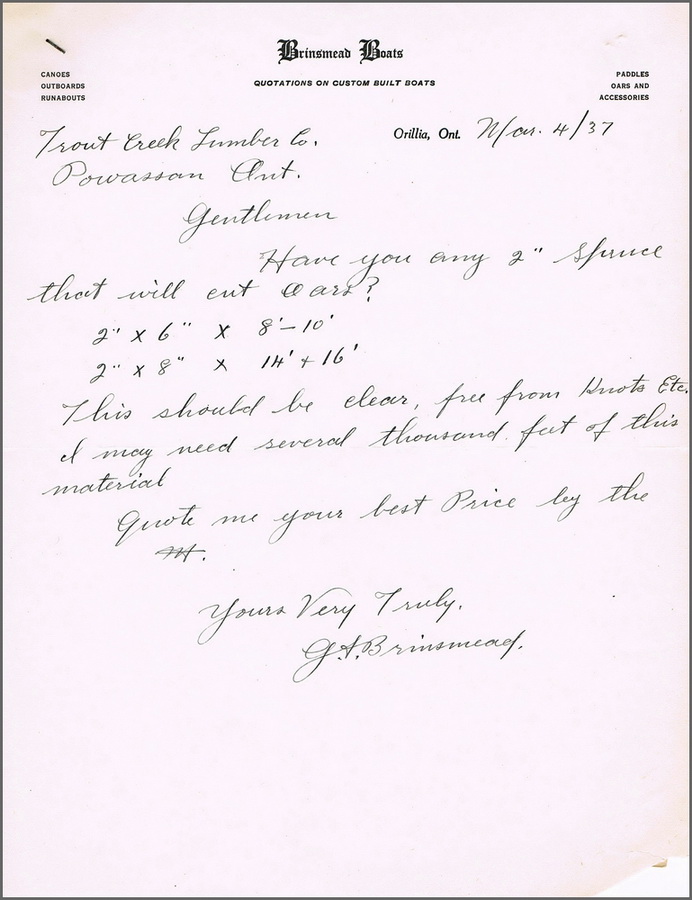 Brinsmead Boats
QUOTATIONS ON CUSTOM BUILT BOATS
CANOES
OUTBOARDS
RUNABOUTS
PADDLES
OARS AND
ACCESSORIES
Orillia, Ont. Mar. 4/37
Trout Creek Lumber Co.
Powassan Ont.
Gentlemen
Have you any 2" Spruce
that will cut Oars?
2" x 6" x 8'-10'
2" x 8" x 14' + 16'
This should be clear, free from Knots Etc.
I may need several thousand feet of this
material
Quote me your best Price by the
M.
Yours Very Truly,
G.A. Brinsmead.